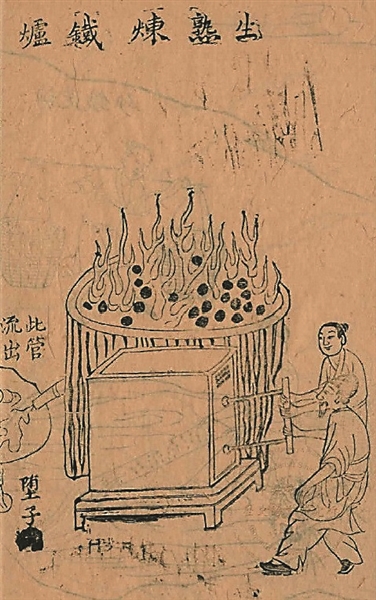 生熟煉鐵爐
此管
流出
堕子